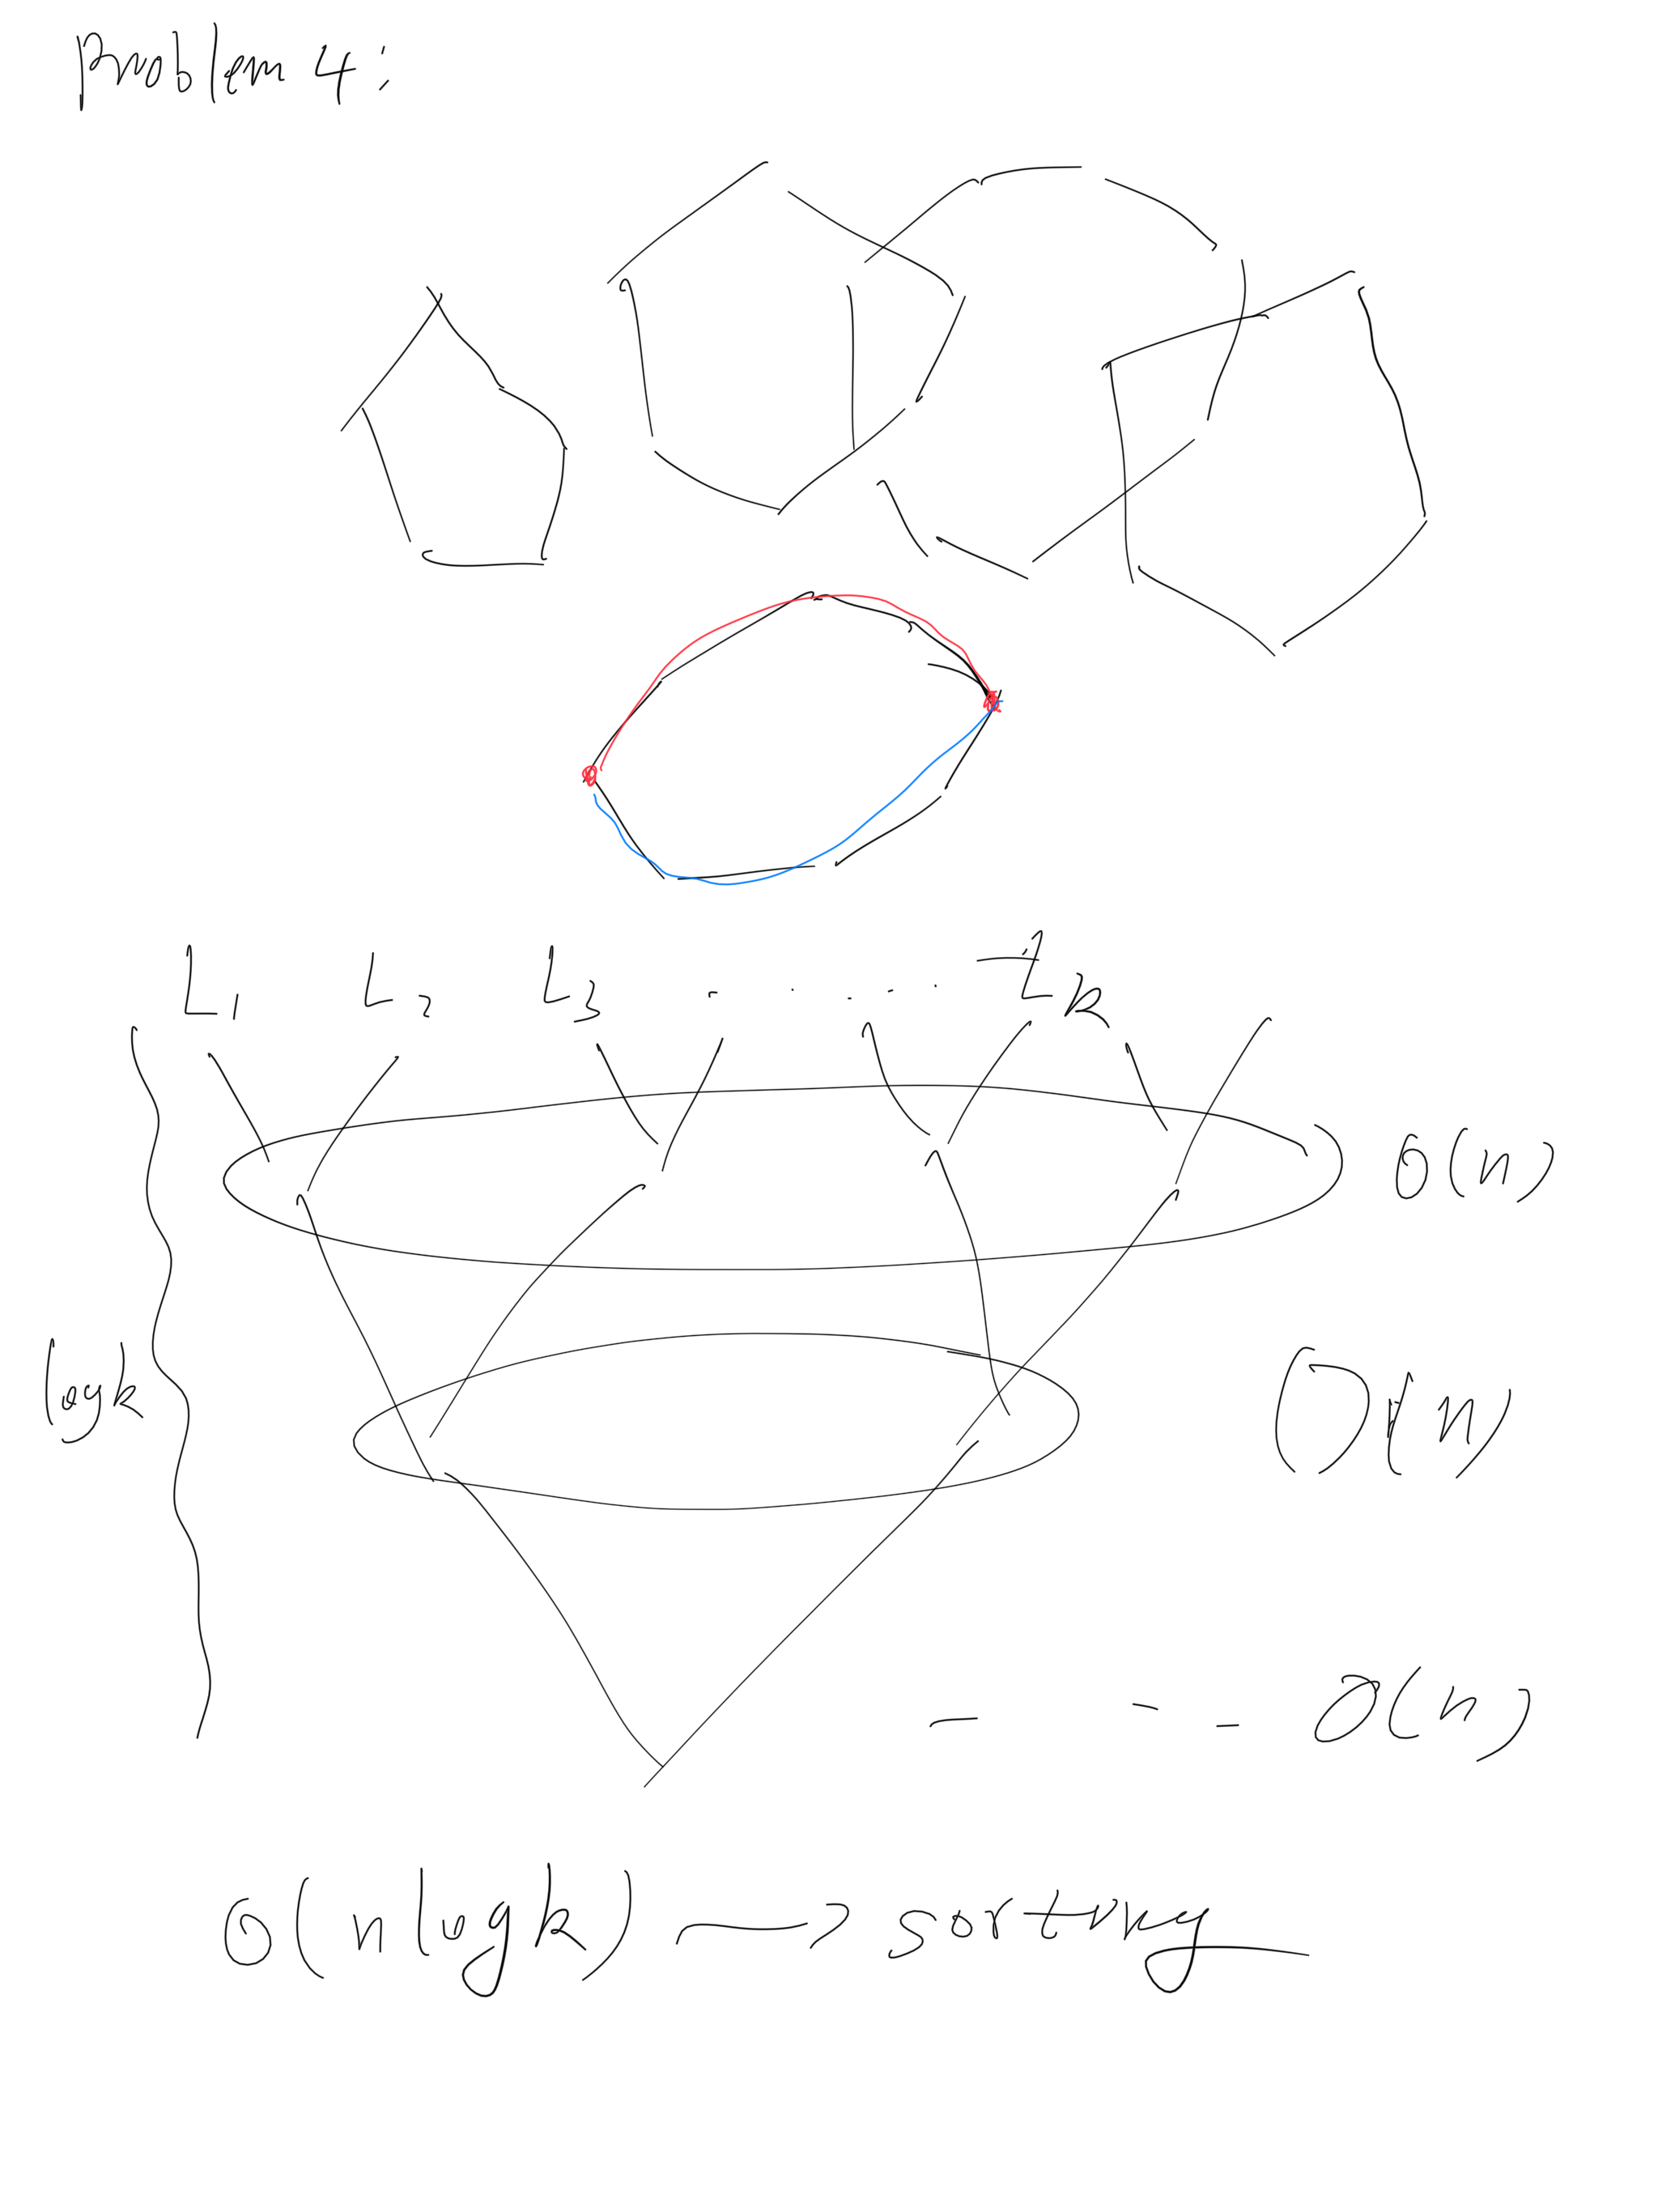 Problem 4:
L1 L2 L3 - . . . . Lk
O(n)
log k
O(n)
- - - O(n)
O(n log k) → sorting